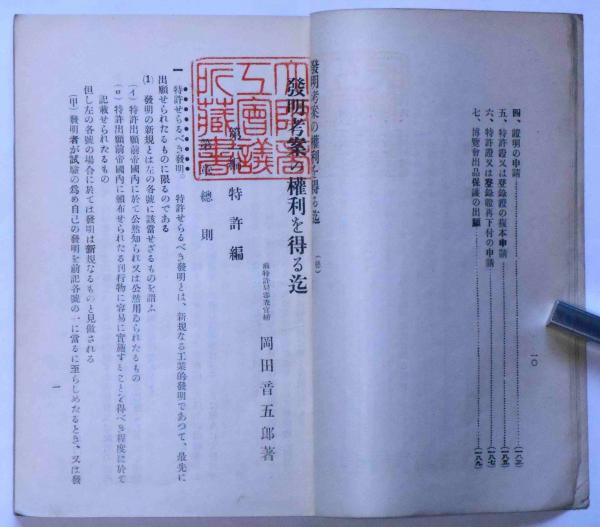 四、證明の申請………(一八三)
五、特許證又は登錄證の複本申請………(一八五)
六、特許證又は登錄證再下付の申請………(一八七)
七、博覽會出品保護の出願………(一八九)
一〇
發明考案の權利を得る迄 (終)
發明考案の權利を得る迄
前特許局審査官補 岡田音五郎著
第一編 特許編
總則
一 特許せらるべき發明。 特許せらるべき發明とは、新規なる工業的發明であつて、最先に
出願せられたるものに限るのである
(1) 發明の新規とは左の各號に該當せざるものを謂ふ
(イ) 特許出願前帝國內に於て公然知られ又は公然用ゐられたるもの
(ロ) 特許出願前帝國內に頒布せられたる刊行物に容易に實施することを得べき程度に於て
記載せられたるもの
但し左の各號の場合に於ては發明は新規なるものと見做される
(甲) 發明者が試驗の爲め自己の發明を前記各號の一に當るに至らしめたるとき、又は發
一